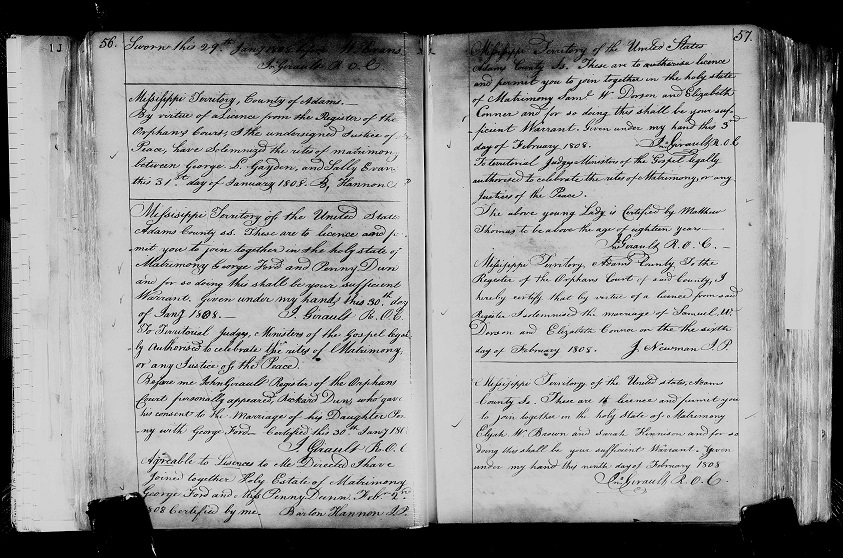 56.
Sworn this 29th Jany 1808 before W. Evans
Jn. Girault R. O. C.
Mississippi Territory, County of Adams.—
By virtue of a Licence from the Register of the
Orphans Court, I the undersigned Justice of
Peace, have solemnized the rites of matrimony
between George L. Gayden, and Sally Evan
this 31st day of January 1808. B. Hannon
Mississippi Territory of the United State
Adams County ss. These are to licence and p
mit you to join together in the holy state of
Matrimony George Ford and Penny Dun
and for so doing this shall be your sufficient
Warrant. Given under my hand, this 30th day
of Jany 1808.— J. Girault R. O. C.
To Territorial Judges, Ministers of the Gospel legal
ly Authorised to celebrate the rites of Matrimony,
or any Justice of the Peace.
Before me John Girault Register of the Orphans
Court personally appeared, Richard Dun, who gave
his consent to the Marriage of his Daughter Pen
ny with George Ford. Certified this 30th Jany 180
J. Girault R. O. C
Agreable to Lisences to Me Directed I have
Joined together Holy Estate of Matrimony
George Ford and Miss Penny Dunn. Feb
1808 Certified by me. Barton Hannon J.P.
57.
Mississippi Territory of the United States
Adams County Ss. These are to authorise licence
and permit you to join together in the holy state
of Matrimony Saml. W. Dorson and Elizabeth
Connor and for so doing this shall be your suf
ficient Warrant. Given under my hand this 3d
day of February 1808. Jn. Girault R. O. C
To Territorial Judges Ministers of the Gospel legally
authorised to celebrate the rites of Matrimony, or any
Justices of the Peace.
The above young Lady is Certified by Matthew
Thomas to be above the age of eighteen years—
Jn. Girault R. O. C.—
Mississippi Territory, Adams County To the
Register of the Orphans Court of said County, I
hereby certify that by virtue of a licence from said
Register I solemnized the marriage of Samuel W.
Dorson and Elizabeth Connor on the the sixth
day of February 1808. J. Newman J. P.
Mississippi Territory of the United states, Adams
County Ss. These are to licence and permit you
to join together in the holy State of Matrimony
Elijah W. Brown and Sarah Hennison and for so
doing this shall be your sufficient Warrant. Given
under my hand this ninth day of February 1808
Jn. Girault R. O. C.